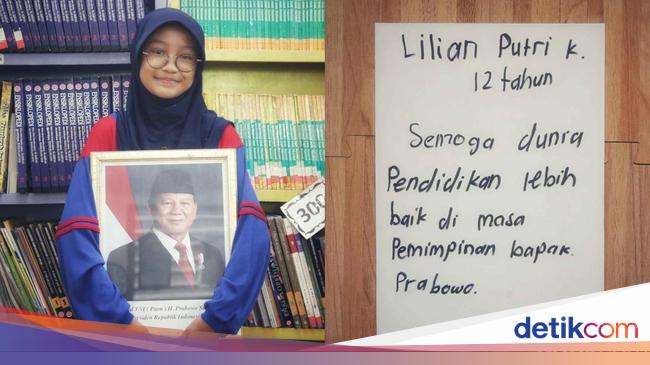 Lilian Putri K.
12 tahun
Semoga dunia
Pendidikan lebih
baik di masa
Pemimpinan bapak.
Prabowo.
300
TNI (Purn) H. Prabowo S
Presiden Republik Indonesia
detikcom